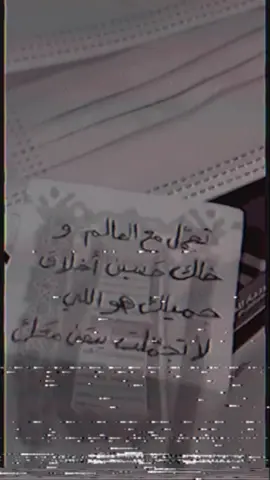 تجمّل مع العالم و
خلك حسين أخلاق
جميلك هو اللي
لا تجمّلت يبقى معك